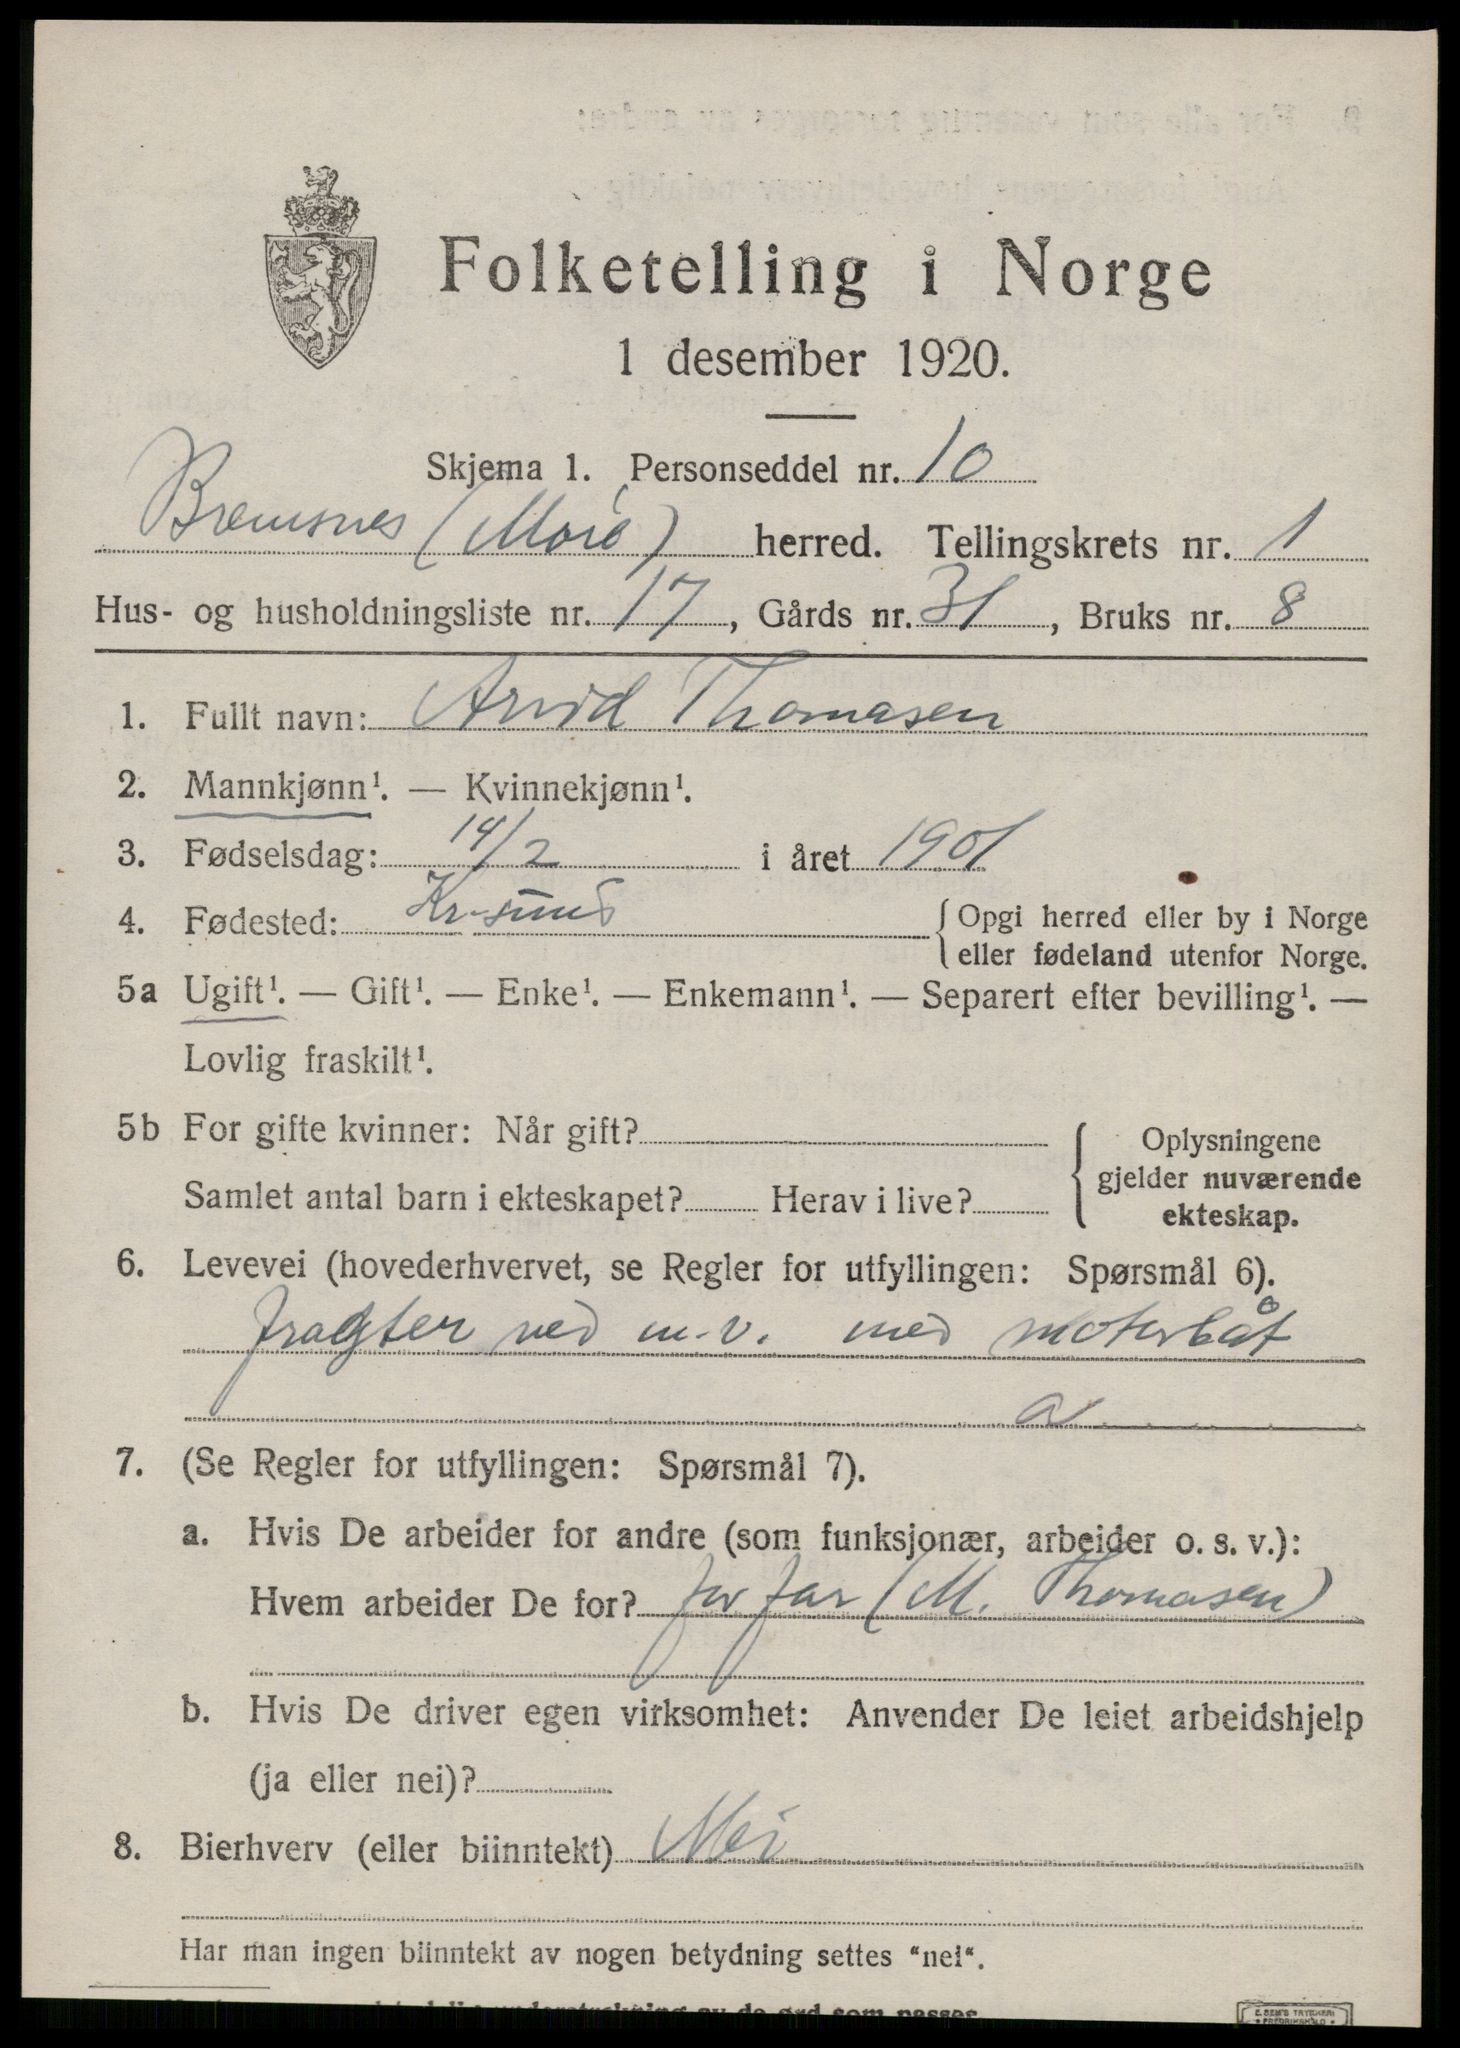 Folketelling i Norge
1 desember 1920.
Skjema 1. Personseddel nr. 10
Bremsnes (Møre) herred. Tellingskrets nr. 1
Hus- og husholdningsliste nr. 17, Gårds nr. 31, Bruks nr. 8
1. Fullt navn: Arvid Thomasen
2. Mannkjønn¹. — Kvinnekjønn¹.
3. Fødselsdag: 14/2 i året 1901
4. Fødested: Kr-sund {Opgi herred eller by i Norge
eller fødeland utenfor Norge.
5a Ugift¹. — Gift¹. — Enke¹. — Enkemann¹. — Separert efter bevilling¹. —
Lovlig fraskilt¹.
5b For gifte kvinner: Når gift?
Samlet antal barn i ekteskapet? Herav i live?
Oplysningene
gjelder nuværende
ekteskap.
6. Levevei (hovederhvervet, se Regler for utfyllingen: Spørsmål 6).
fragter ved m.v. med motorbåt
a
7. (Se Regler for utfyllingen: Spørsmål 7).
a. Hvis De arbeider for andre (som funksjonær, arbeider o. s. v.):
Hvem arbeider De for? for far (M. Thomasen)
b. Hvis De driver egen virksomhet: Anvender De leiet arbeidshjelp
(ja eller nei)?
8. Bierhverv (eller biinntekt) Nei
Har man ingen biinntekt av nogen betydning settes "nei".
E. SEM'S TRYKKERI
FREDRIKSHALD